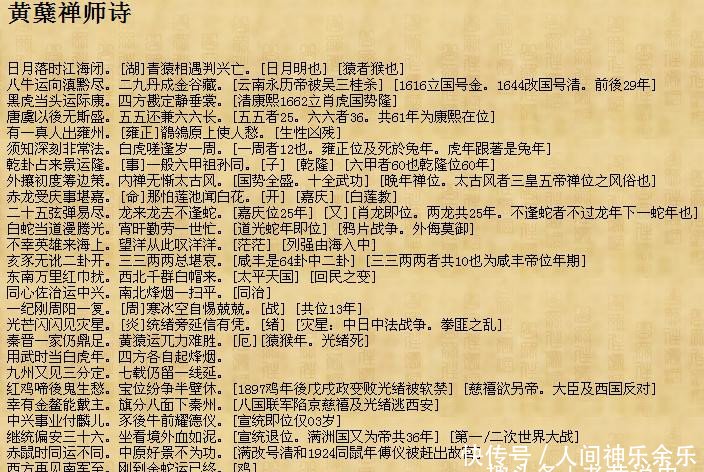 黄蘖禅师诗
日月落时江海闭。[湖]青猿相遇判兴亡。[日月明也] [猿者猴也]
八牛运向滇黔尽。二九丹成金谷藏。[云南永历帝被吴三桂杀] [1616立国号金。1644改国号清。前後29年]
黑虎当头运际康。四方戡定静垂裳。[清康熙1662立肖虎国势隆]
唐虞以後无斯盛。五五还兼六六长。[五五者25。六六者36。共61年为康熙在位]
有一真人出雍州。[雍正]鹡鸰原上使人愁。[生性凶残]
须知深刻非常法。白虎嗟逢岁一周。[一周者12也。雍正位及死於兔年。虎年跟著是兔年]
乾卦占来景运隆。[事]一般六甲祖孙同。[子] [乾隆] [六甲者60也乾隆位60年]
外攘初度筹边策。内禅无惭太古风。[国势全盛。十全武功] [晚年禅位。太古风者三皇五帝禅位之风俗也]
赤龙受庆事堪嘉。[命]那怕莲池闻白花。[开] [嘉庆] [白莲教]
二十五弦弹易尽。龙来龙去不逢蛇。[嘉庆位25年] [又][肖龙即位。两龙共25年。不逢蛇者不过龙年下一蛇年也]
白蛇当道漫腾光。宵旰勤劳一世忙。[道光蛇年即位] [鸦片战争。外侮莫御]
不幸英雄来海上。望洋从此叹洋洋。[茫茫] [列强由海入中]
亥豕无讹二卦开。三三两两总堪哀。[咸丰是64卦中二卦] [三三两两者共10也为咸丰帝位年期]
东南万里红巾扰。西北千群白帽来。[太平天国] [回民之变]
同心佐治运中兴。南北烽烟一扫平。[同治]
一纪刚周阳一复。[周]寒冰空自惕兢兢。[战] [共位13年]
光芒闪闪见灾星。[炎]统绪旁延信有凭。[绪] [灾星：中日中法战争。拳匪之乱]
秦晋一家仍鼎足。黄猿运兀力难胜。[厄][猿猴年。光绪死]
用武时当白虎年。四方各自起烽烟。
九州又见三分定。七载仍留一线延。
红鸡啼後鬼生愁。宝位纷争半壁休。[1897鸡年後戊戌政变败光绪被软禁] [慈禧欲另帝。大臣及西国反对]
幸有金鳌能戴主。旗分八面下秦州。[八国联军陷京慈禧及光绪逃西安]
中兴事业付麟儿。豕後牛前耀德仪。[宣统即位仅03岁]
继统偏安三十六。坐看境外血如泥。[宣统退位。满洲国又为帝共36年] [第一/二次世界大战]
赤鼠时同运不同。中原好景不为功。[满改号清和1924同鼠年傅仪被赶出故
西方再见南军至。刚到金蛇运已终。[鸡]
快传号／人间神乐余乐